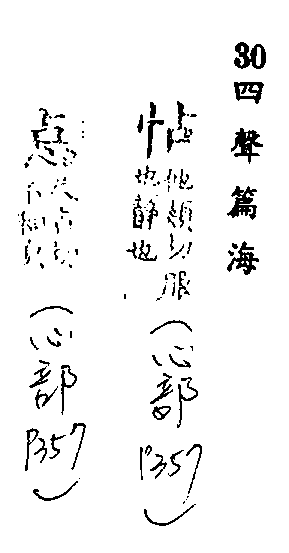 30四聲篇海
怗他頰切服
也靜也
(心部
P357)
惉尺占切
(心部
P357)